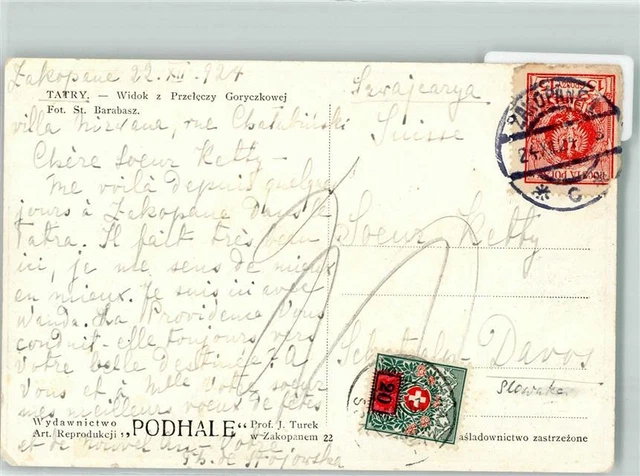 Zakopane 22. XII. 924
TATRY. — Widok z Przełęczy Goryczkowej
Fot. St. Barabasz.
villa Nirvana, rue Chałubiński
Chère Soeur Ketty —
Me voilà depuis quelques
jours à Zakopane dans le
Tatra. Il fait très beau
ici, je me sens de mieux
en mieux. Je suis ici avec
Wanda. La Providence Vous
conduit-elle toujours vers
Votre belle destinée? A
Vous et à Melle Votre soeur
mes meilleurs voeux de fêtes
et de nouvel an.
Szwajcarya
Suisse
Soeur Ketty
Davos
Slowakei
ZAKOPANE
* C
POCZTA POLSKA
20
Wydawnictwo
Art. Reprodukcji „PODHALE" Prof. J. Turek
w Zakopanem 22
Naśladownictwo zastrzeżone